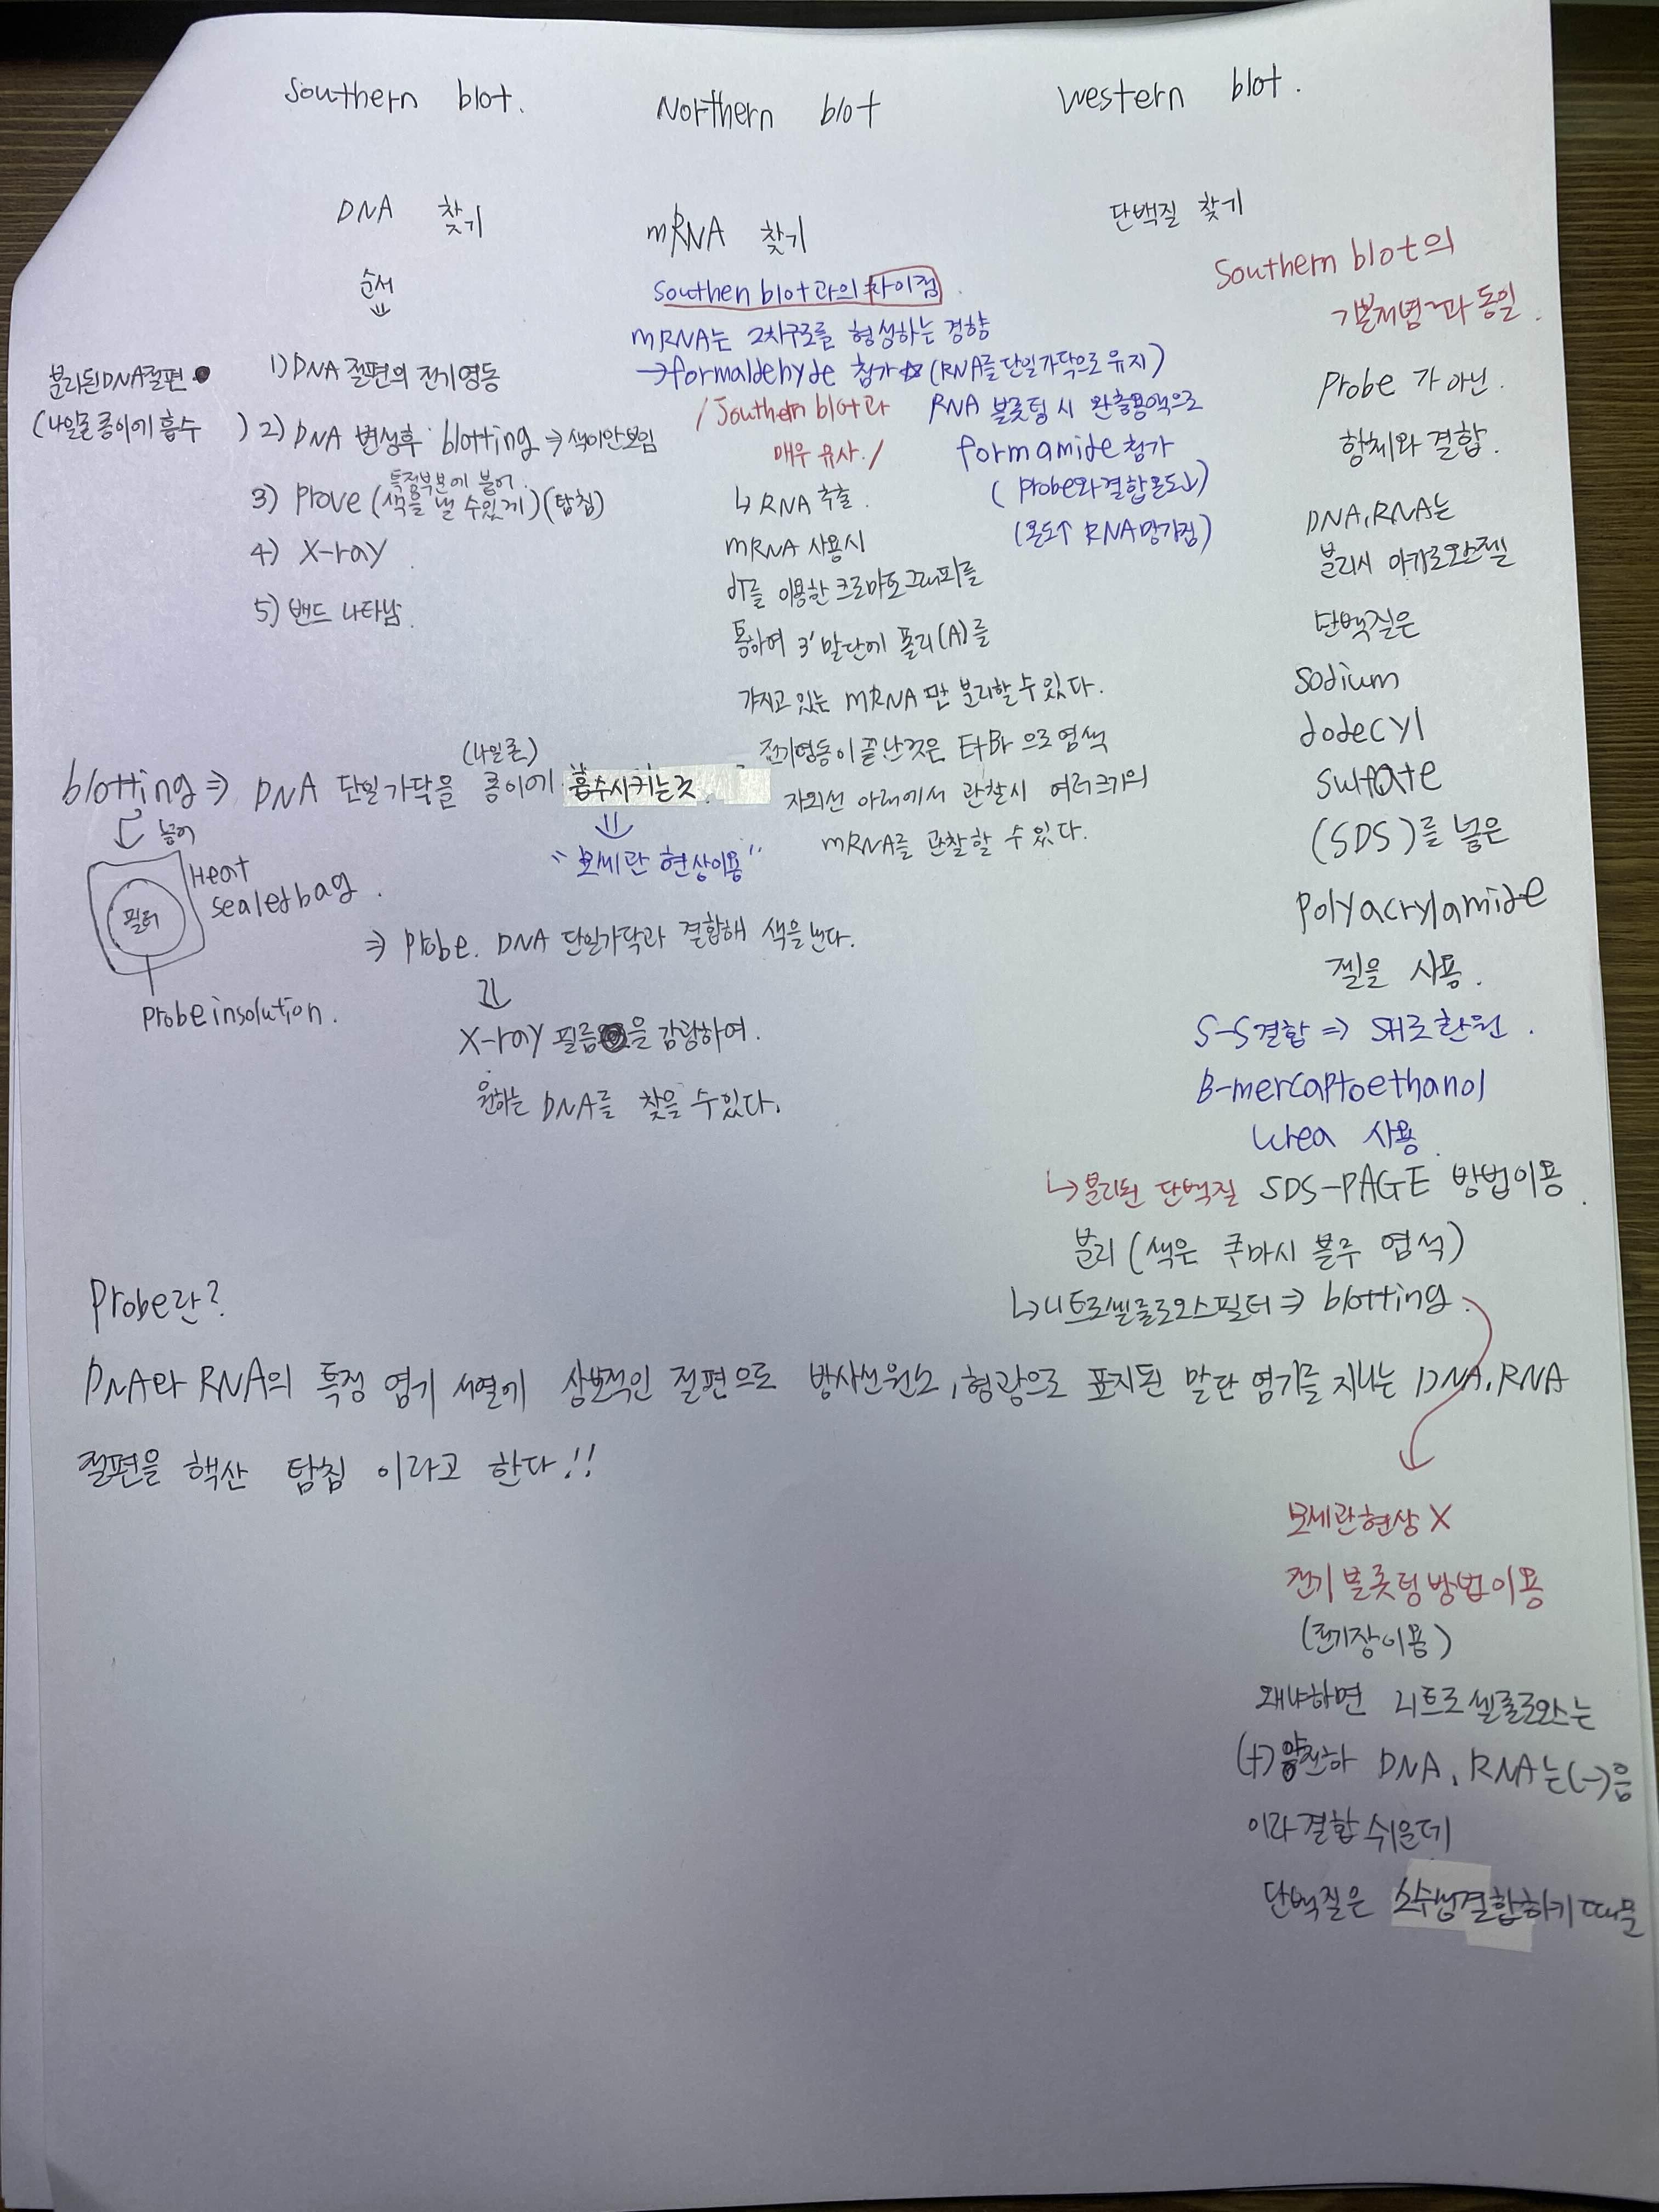 Southern blot.
DNA 찾기
순서
1) DNA 절편의 전기영동
분리된 DNA절편
(나일론 종이에 흡수 )
2) DNA 변성후 blotting ⇒ 색이안보임
특정부분에 붙어
3) Prove (색을 낼 수있게) (탐침)
4) X-ray
5) 밴드 나타남.
(나일론)
blotting ⇒ DNA 단일가닥을 종이에 흡수시키는것.
넣어
"모세관 현상이용"
Heat
sealed bag.
필터
Probe in solution.
⇒ Probe. DNA 단일가닥과 결합해 색을낸다.
X-ray 필름을 감광하여.
원하는 DNA를 찾을 수있다.
Northern blot
mRNA 찾기
Southen blot과의 차이점.
mRNA는 2차구조를 형성하는 경향
→ formaldehyde 첨가☆ (RNA를 단일가닥으로 유지)
/Southern blot과
매우 유사./
RNA 블롯팅 시 완충용액으로
formamide 첨가
(probe와 결합온도↓)
(온도↑ RNA망가짐)
↳ RNA 추출.
mRNA 사용시
dT를 이용한 크로마토그래피를
통하여 3' 말단에 폴리(A)를
가지고 있는 mRNA만 분리할 수 있다.
전기영동이 끝난것은 EtBr으로 염색
자외선 아래에서 관찰시 여러크기의
mRNA를 관찰할 수 있다.
Western blot.
단백질 찾기
Southern blot의
기본개념과 동일.
Probe 가 아닌.
항체와 결합.
DNA, RNA는
분리시 아가로오스젤
단백질은
Sodium
dodecyl
sulfate
(SDS)를 넣은
Polyacrylamide
젤을 사용.
S-S결합 ⇒ SH로 환원.
B-mercaptoethanol
Urea 사용.
↳ 분리된 단백질 SDS-PAGE 방법이용.
분리 (색은 쿠마시 블루 염색)
↳ 니트로셀룰로오스필터 ⇒ blotting.
모세관현상 X
전기 블롯팅방법이용
(전기장이용)
왜냐하면 니트로셀룰로오스는
(+)양전하 DNA, RNA는(-)음
이라 결합 쉬운데
단백질은 소수성결합하기 때문
Probe란?
DNA와 RNA의 특정 염기 서열에 상보적인 절편으로 방사선원소, 형광으로 표지된 말단 염기를 지나는 DNA, RNA
절편을 핵산 탐침 이라고 한다!!